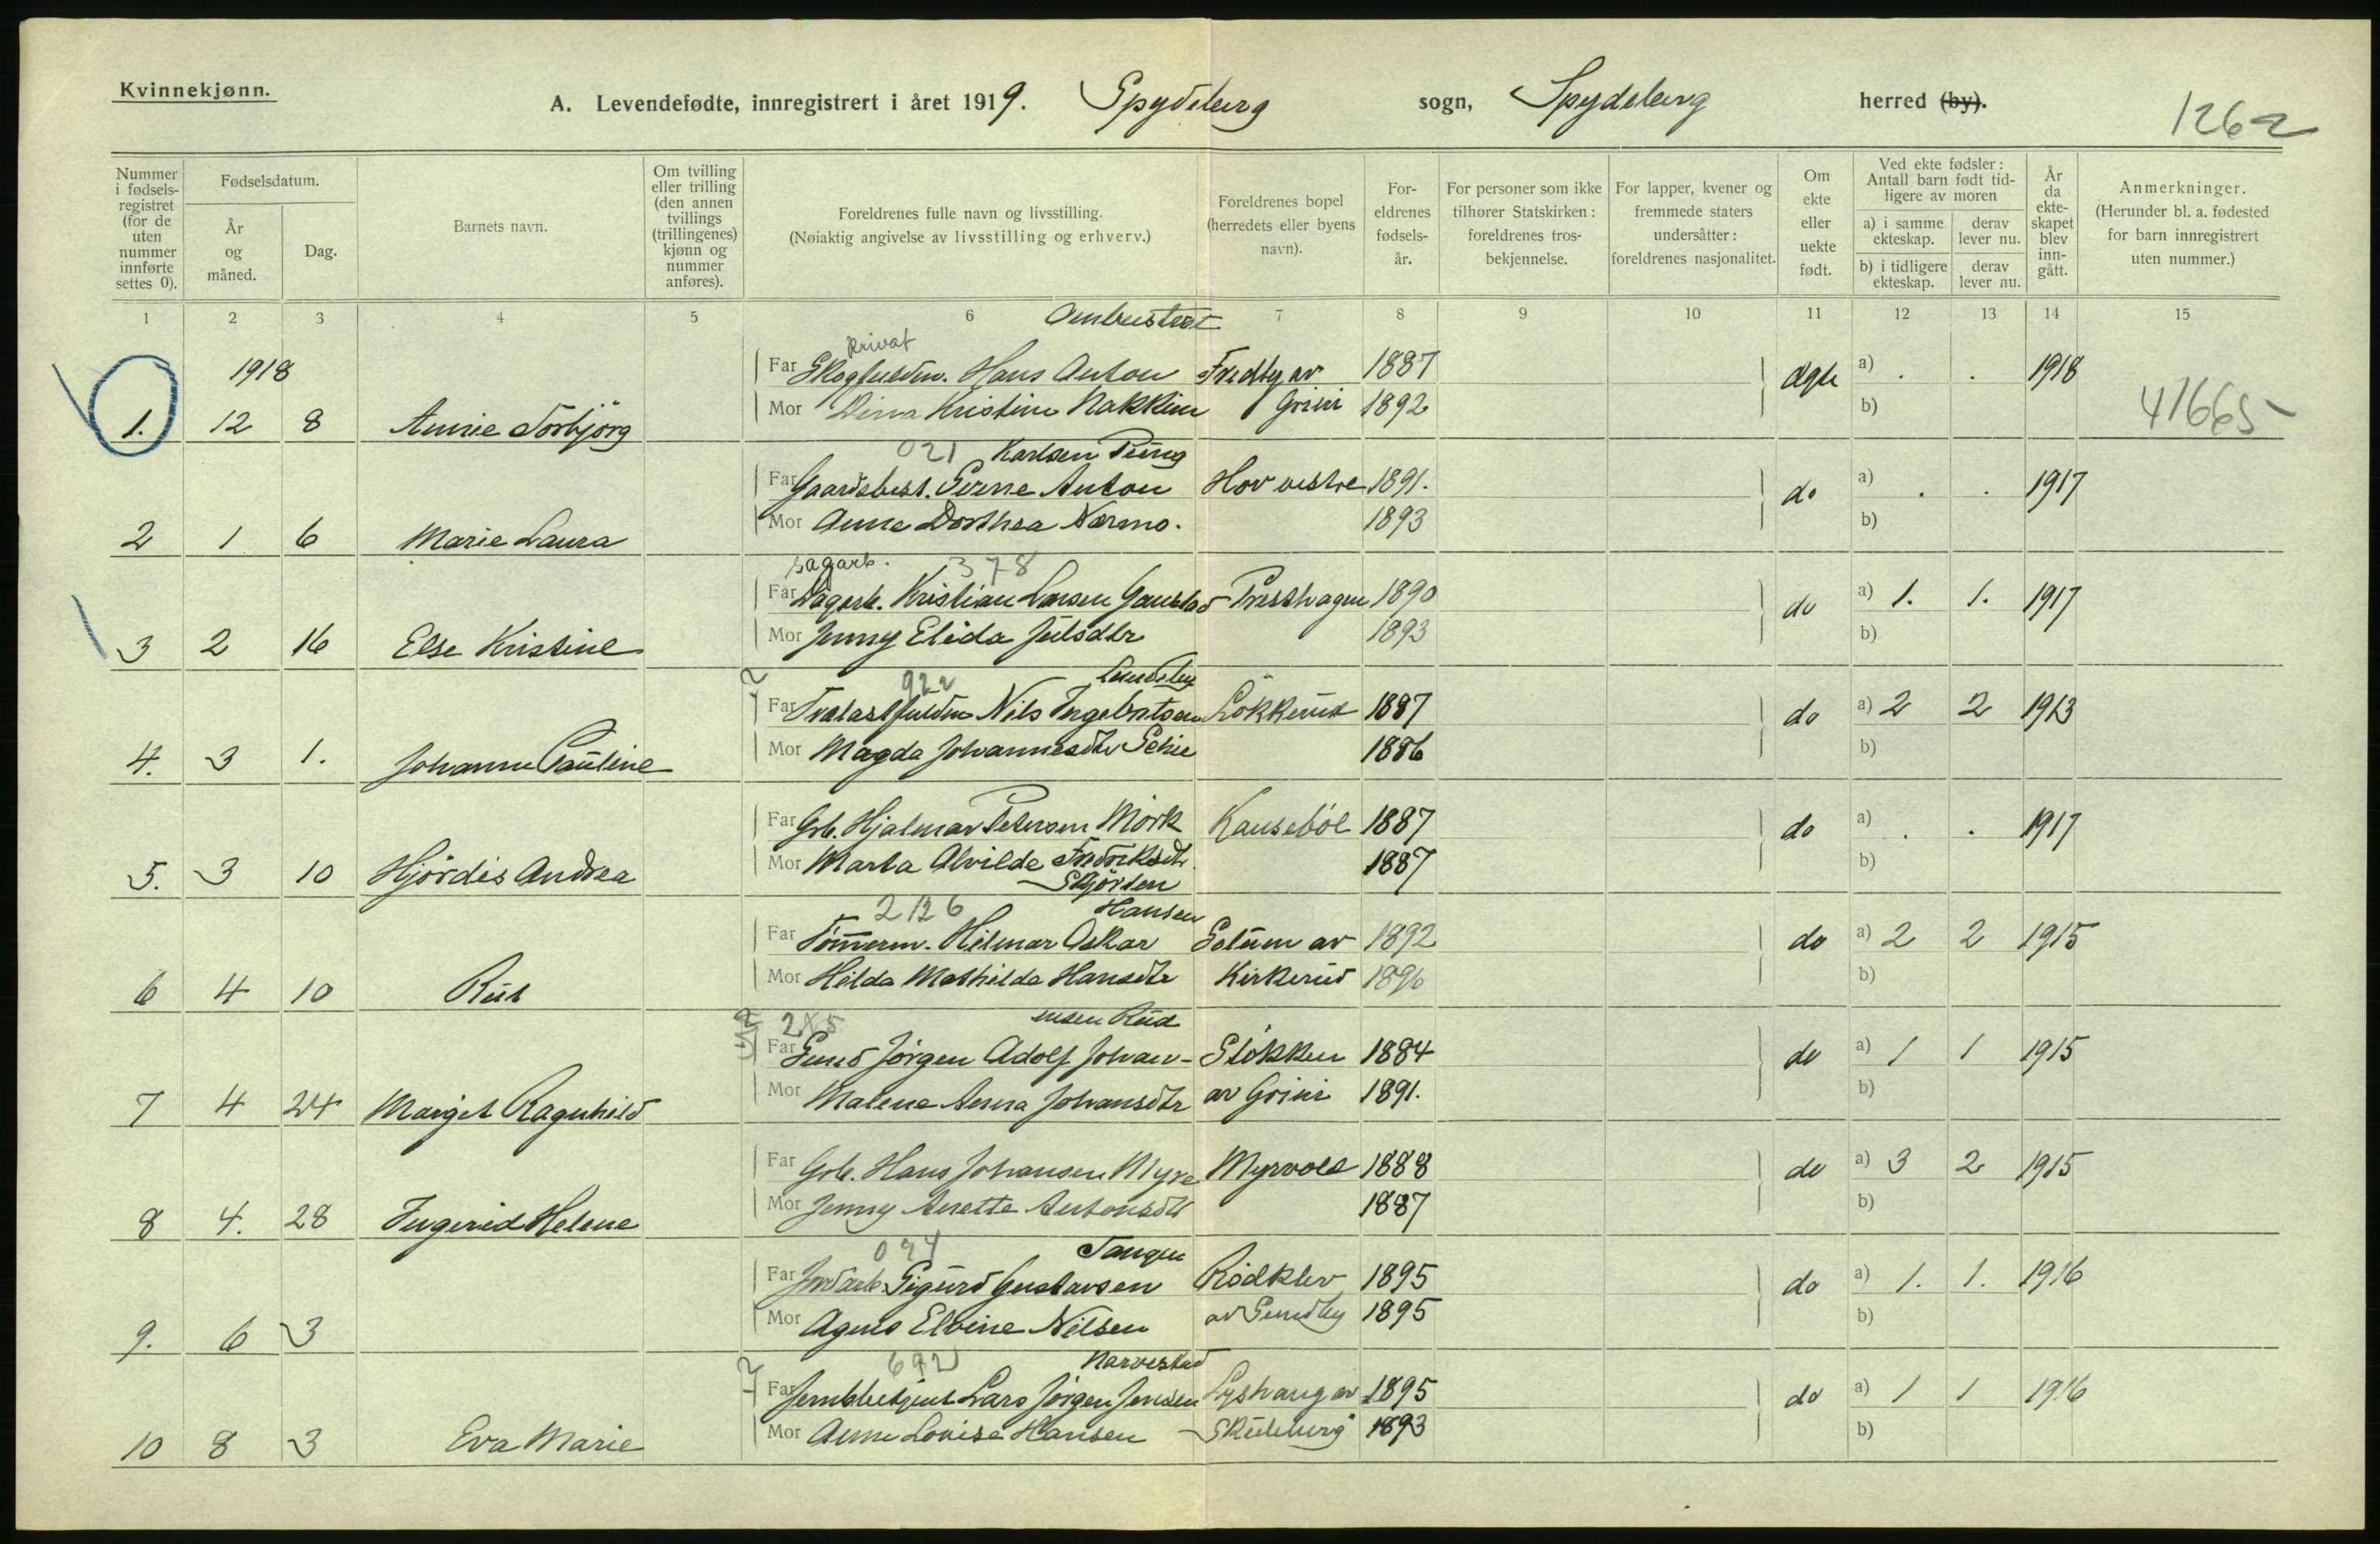 Kvinnekjønn.
A. Levendefødte, innregistrert i året 1919. Spydeberg sogn, Spydeberg herred (by).
1262
Nummer i fødsels-registret (for de uten nummer innførte settes 0).
Fødselsdatum.
År og måned.
Dag.
Barnets navn.
Om tvilling eller trilling (den annen tvillings (trillingenes) kjønn og nummer anføres).
Foreldrenes fulle navn og livsstilling.
(Nøiaktig angivelse av livsstilling og erhverv.)
Foreldrenes bopel (herredets eller byens navn).
For-eldrenes fødsels-år.
For personer som ikke tilhører Statskirken: foreldrenes tros-bekjennelse.
For lapper, kvener og fremmede staters undersåtter: foreldrenes nasjonalitet.
Om ekte eller uekte født.
Ved ekte fødsler: Antall barn født tid-ligere av moren
a) i samme ekteskap.
derav lever nu.
b) i tidligere ekteskap.
derav lever nu.
År da ekte-skapet blev inn-gått.
Anmerkninger.
(Herunder bl. a. fødested for barn innregistrert uten nummer.)
1 2 3 4 5 6 7 8 9 10 11 12 13 14 15
privat
1918 Far Skogfuldm. Hans Anton 1887 ægte a) . . 1918
Mor Dina Kristine Nakkim Grini 1892 b)
1. 12 8 Annie Torbjörg 41665
021 Karlsen
Far Gaardsbest. Sverre Anton Hov vestre 1891. do a) . . 1917
Mor Anne Dorthea Nærmo. 1893 b)
2 1 6 Marie Laura
sagarb. 378
Far Dagarb. Kristian Larsen Presthagen 1890 do a) 1. 1. 1917
Mor Jenny Elida Julsdtr 1893 b)
3 2 16 Else Kristine
922 Lundeby
Far Trælastfuldm Nils Ingebretsen Løkkerud 1887 do a) 2 2 1913
Mor Magda Johannesdtr 1886 b)
4. 3 1. Johanne Pauline
Far Grb. Hjalmar Petersen Mörk 1887 do a) . . 1917
Mor Marta Alvilde Fredriksdtr. 1887 b)
5. 3 10 Hjördis Andrea Skjörten
2126 Hansen
Far Tömmerm. Hilmar Oskar Solum av 1892 do a) 2 2 1915
Mor Hilda Mathilda Hansdtr Kirkerud 1896 b)
6 4 10 Rut
285 nsen Rud
Far Smed Jørgen Adolf Johan- Slökken 1884 do a) 1 1 1915
Mor Malene Anna Johansdtr av Grini 1891. b)
7 4 24 Margit Ragnhild
Far Grb. Hans Johansen Myre Myrvold 1888 do a) 3 2 1915
Mor Jenny Anette Antonsdtr 1887 b)
8 4. 28 Ingerid Helene
024 Tangen
Far Jordarb. Sigurd Gustavsen Rödklev 1895 do a) 1. 1. 1916
Mor Agnes Elvine Nilsen av Sundby 1895 b)
9. 6 3
692 Narvestad
Far Jernbbetjent Lars Jörgen Jensen Lyshaug av 1895 do a) 1 1 1916
Mor Anne Lovise Hansen Skuleberg 1893 b)
10 8 3 Eva Marie